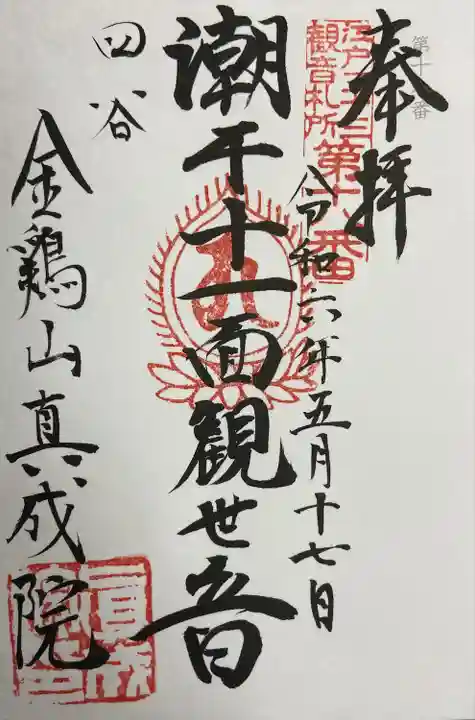 奉拝
江戸三十三
観音札所
第十八番
令和六年五月十七日
潮干十一面観世音
四谷
金鶏山真成院